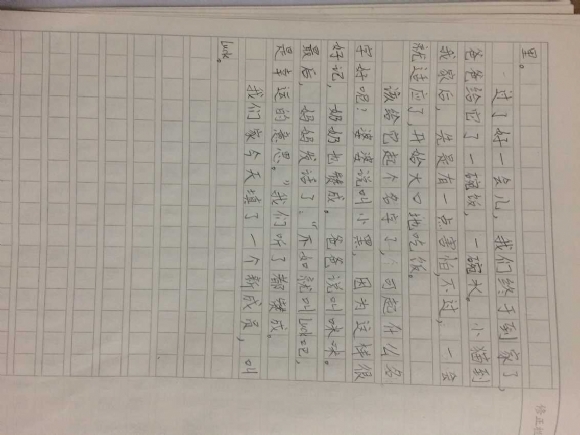 里。
过了好一会儿，我们终于到家了，
爸爸给它了一碗饭，一碗水。小猫到
我家后，先是有一点害怕，不过，一会
就适应了，开始大口地吃饭。
该给它起个名字了，可起什么名
字好呢？婆婆说叫小黑，因为这样很
好记，奶奶也赞成。爸爸说叫咪咪。
最后，妈妈发话了：“不如就叫luck吧，
是幸运的意思。”我们听了都赞成。
我们家今天填了一个新成员，叫
luck。
修正